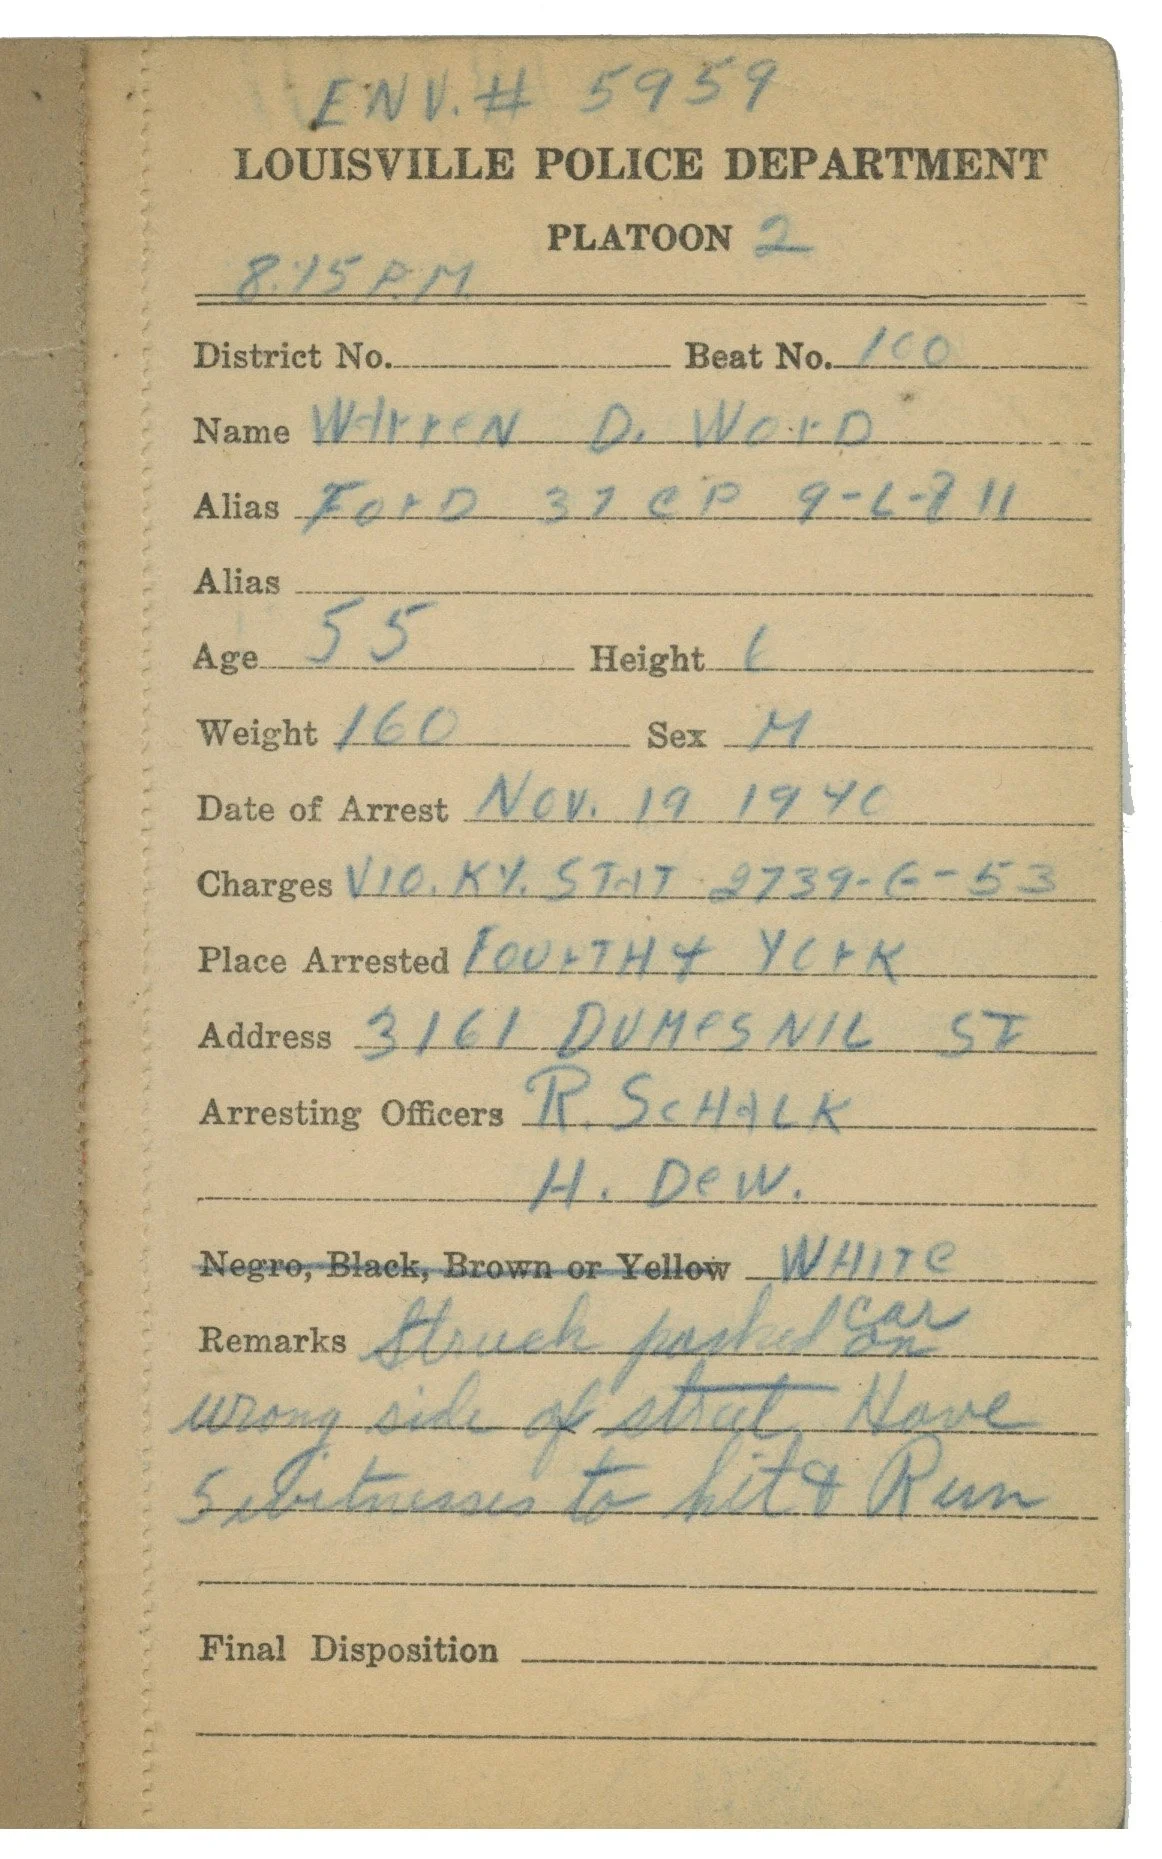 ENV. # 5959
LOUISVILLE POLICE DEPARTMENT
PLATOON 2
8:15 P.M.
District No. Beat No. 100
Name Warren D. Word
Alias Ford 37 CP 9-L-711
Alias
Age 55 Height 6
Weight 160 Sex M
Date of Arrest Nov. 19 1940
Charges VIO. KY. STAT 2739-G-53
Place Arrested FOURTH & YORK
Address 3161 DUMESNIL ST
Arresting Officers R. SCHALK
H. DeW.
Negro, Black, Brown or Yellow WHITE
Remarks Struck parked car on
wrong side of street. Have
5 witnesses to hit & Run
Final Disposition